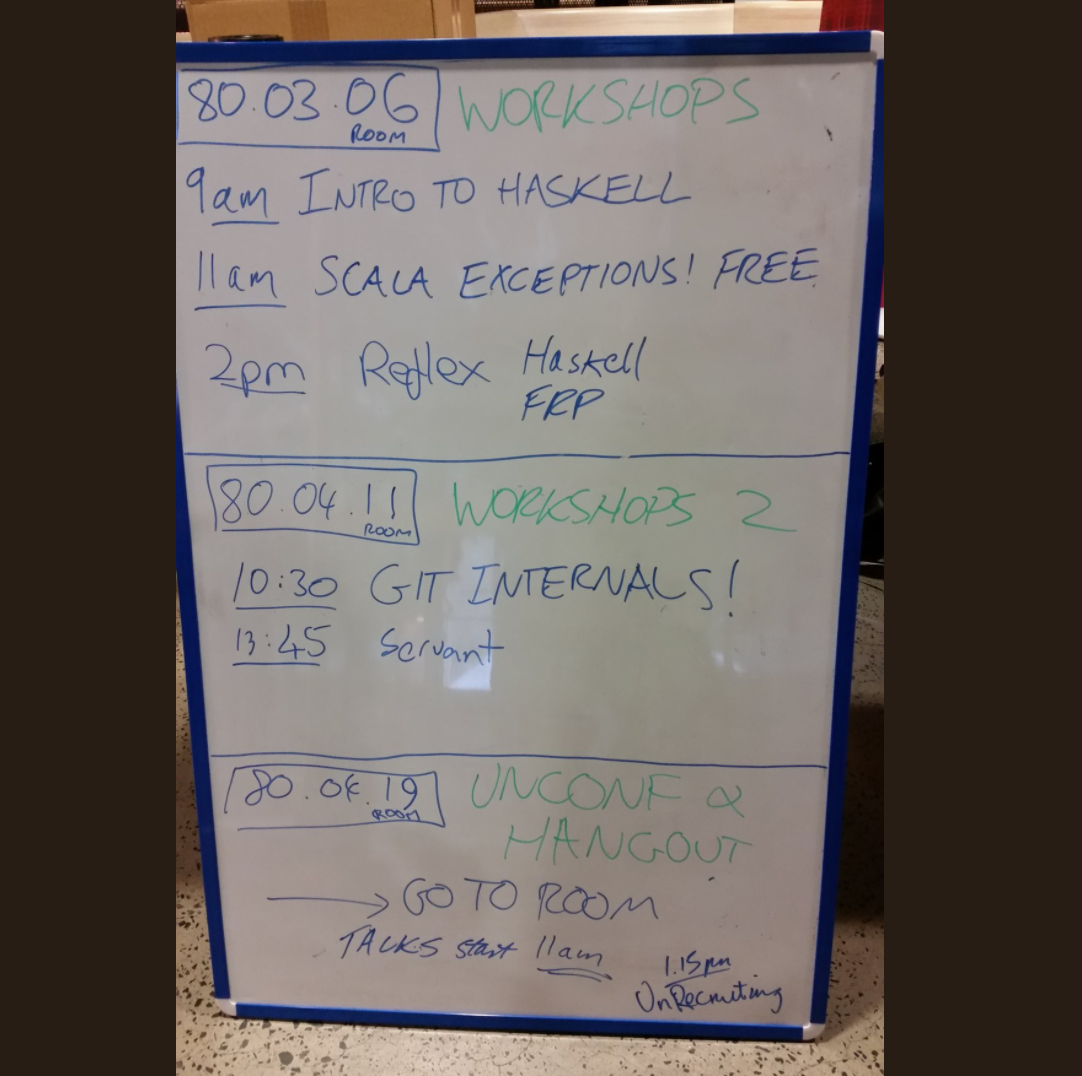 80.03.06 WORKSHOPS
ROOM
9am INTRO TO HASKELL
11am SCALA EXCEPTIONS! FREE
2pm Reflex Haskell
FRP
80.04.11 WORKSHOPS 2
ROOM
10:30 GIT INTERNALS!
13:45 Servant
80.04.19 UNCONF &
ROOM
HANGOUT
→ GO TO ROOM
TALKS start 11am
1.15pm
UnRecruiting